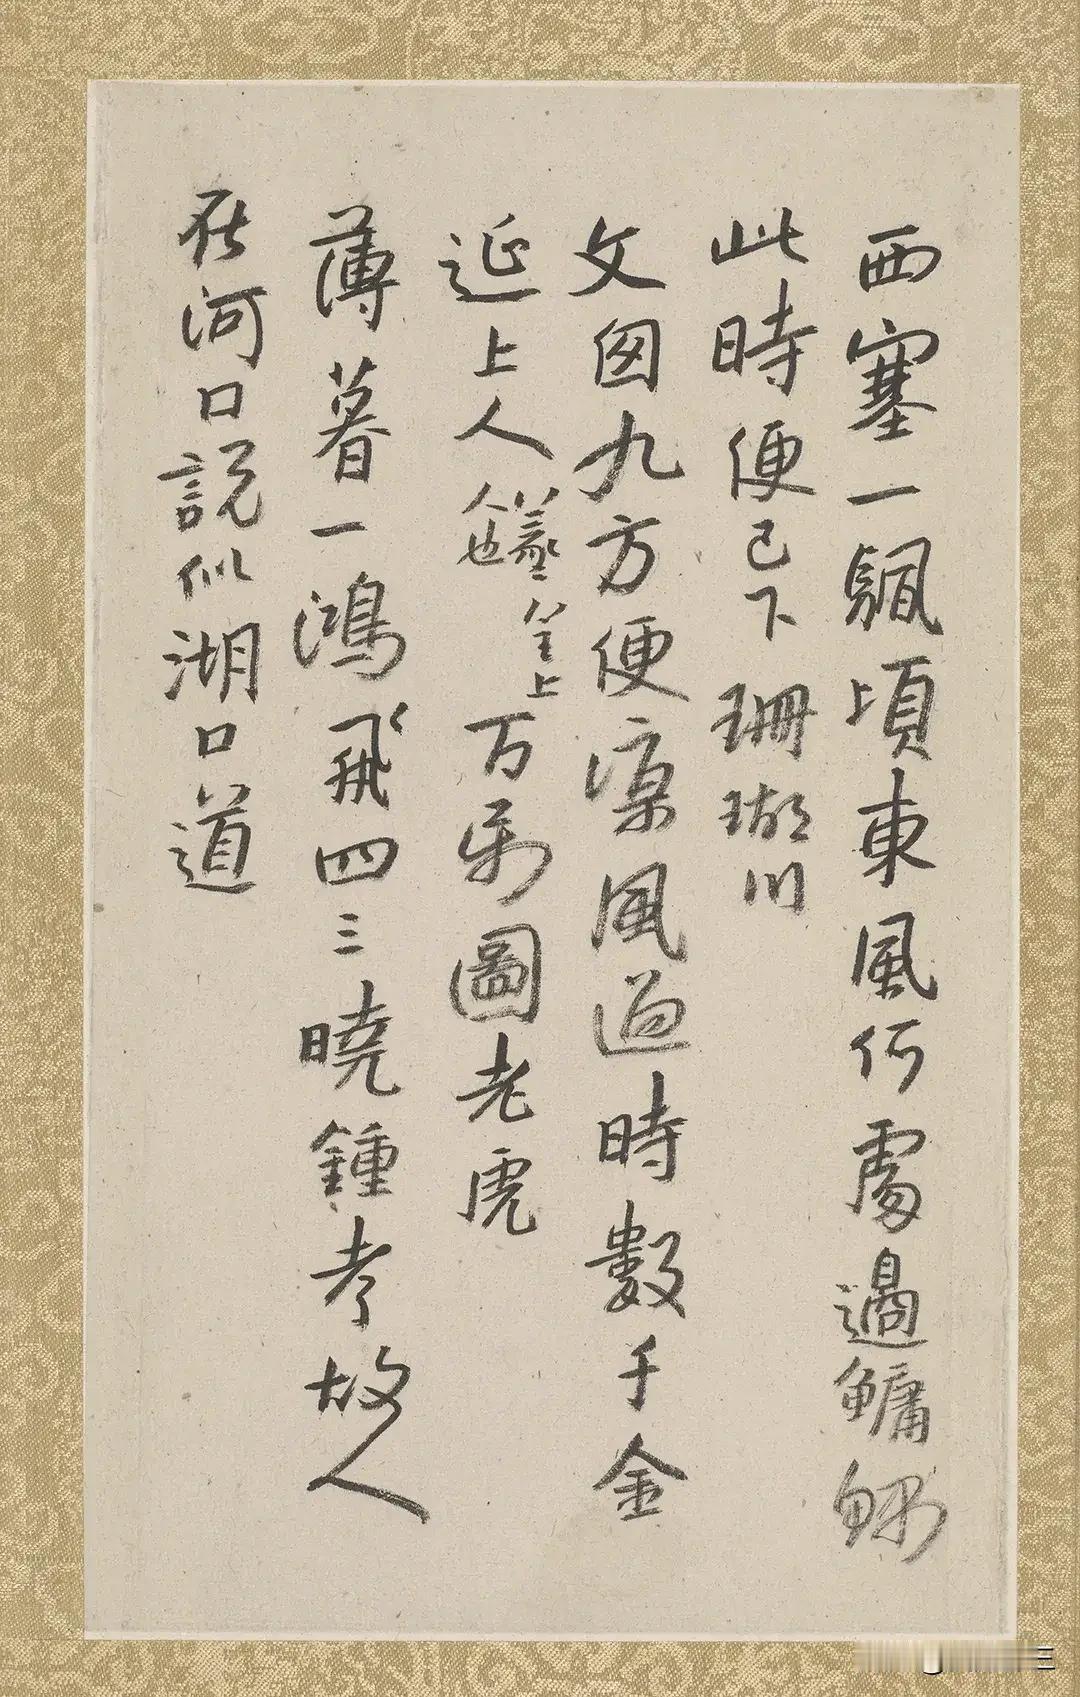 西塞一頃東風何處過鱅
此時便已下珊瑚川
文囪九方便凉風過時數千金
延上人
人也
上
万圖老虎
薄暮一鴻飛四三曉鍾孝故人
在河口説似湖口道
三